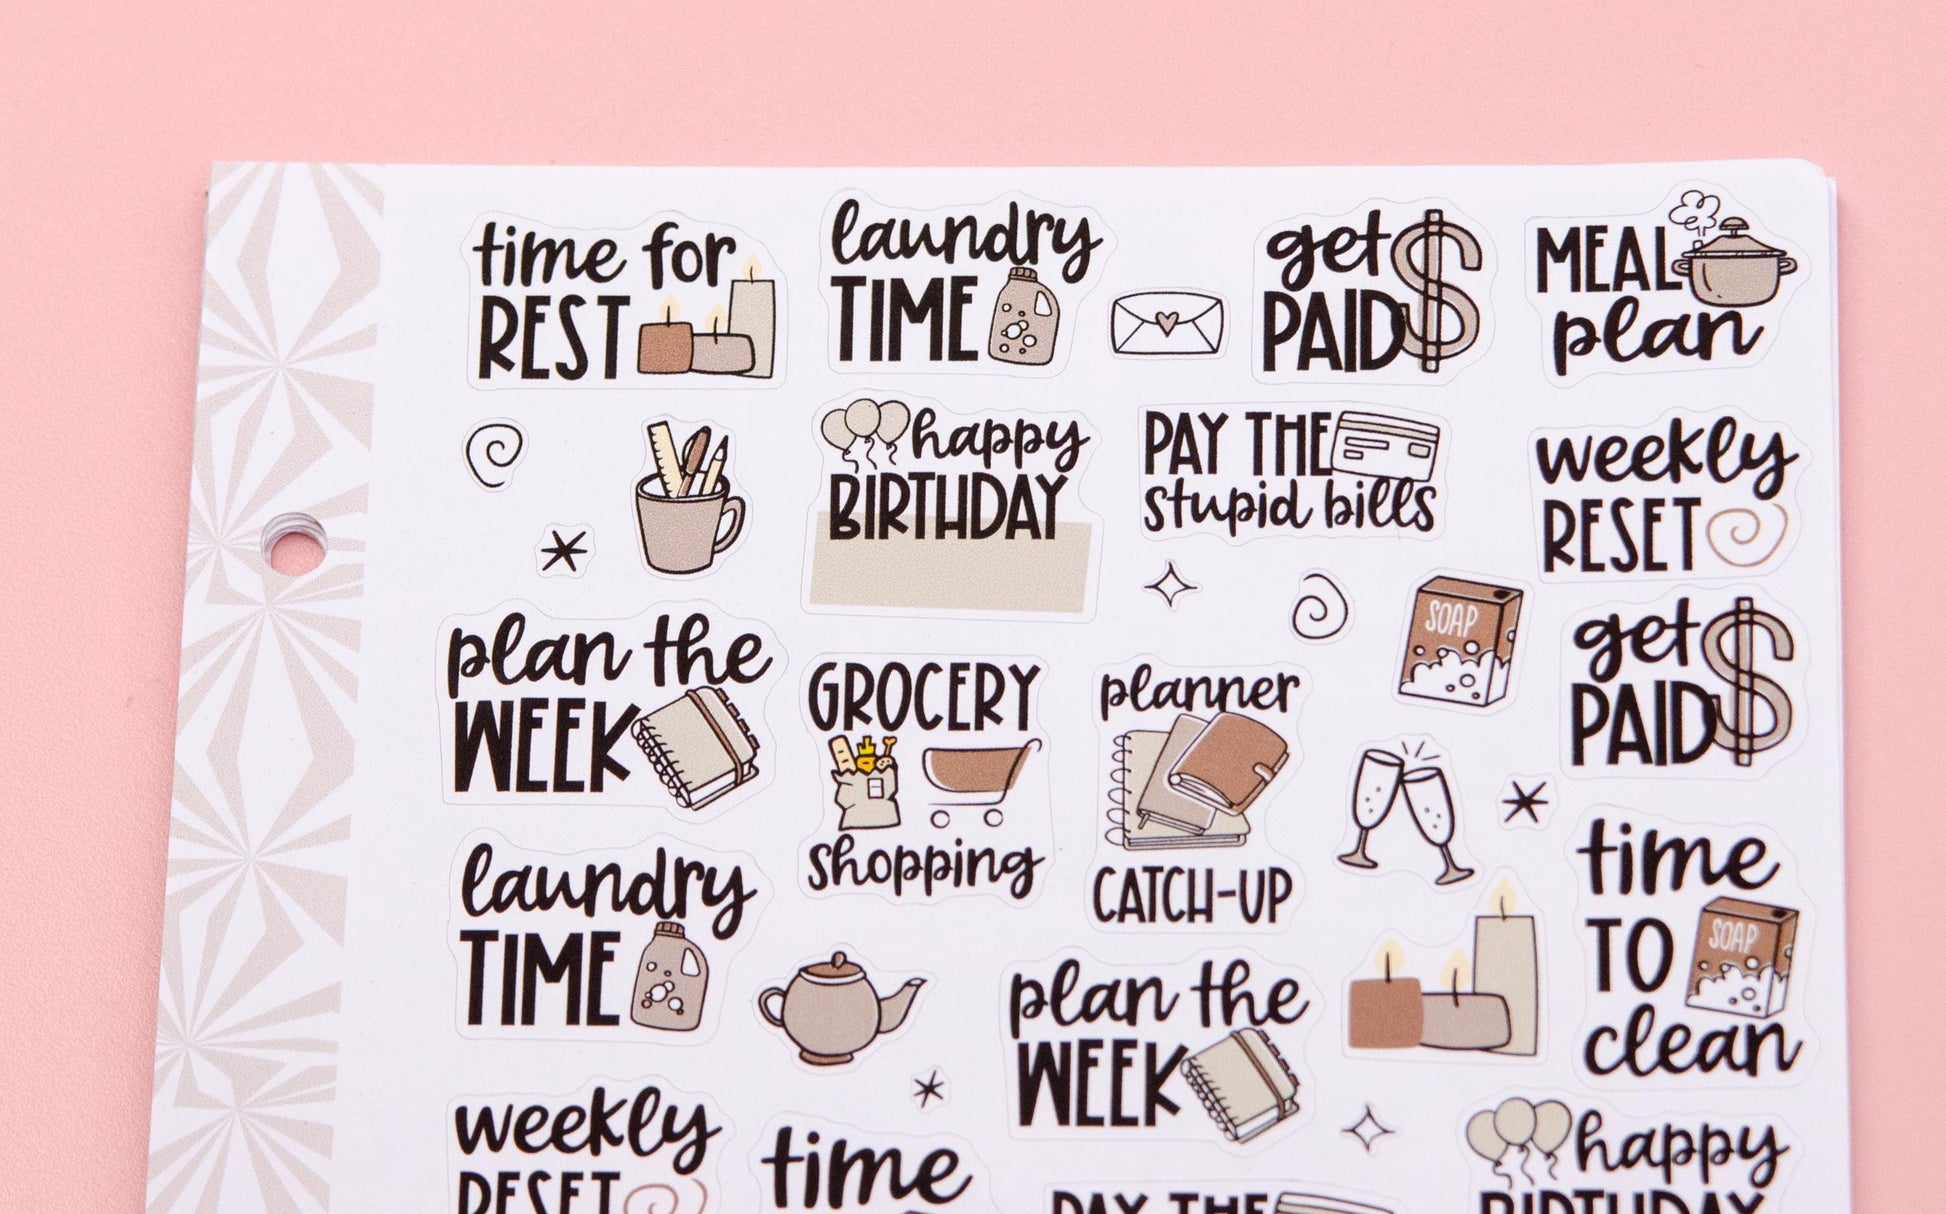 time for
REST
laundry
TIME
get
PAID
MEAL
plan
happy
BIRTHDAY
PAY THE
stupid bills
weekly
RESET
SOAP
plan the
WEEK
GROCERY
shopping
planner
CATCH-UP
get
PAID
laundry
TIME
time
TO
clean
SOAP
plan the
WEEK
weekly
RESET
time
PAY THE
happy
BIRTHDAY